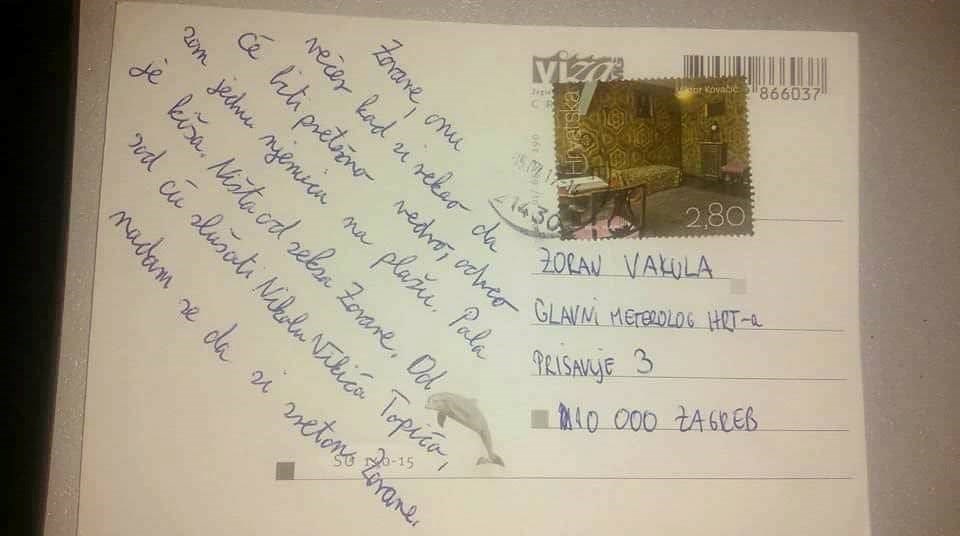 Zorane, onu
večer kad si rekao da
će biti pretežno vedro, odveo
sam jednu njemicu na plažu. Pala
je kiša. Ništa od seksa Zorane. Od
sad ću slušati Nikolu Vikića Topića,
nadam se da si sretan Zorane.
viza
866037
Hrvatska
Viktor Kovačić
2,80
ZORAN VAKULA
GLAVNI METEROLOG HRT-a
PRISAVLJE 3
10 000 ZAGREB